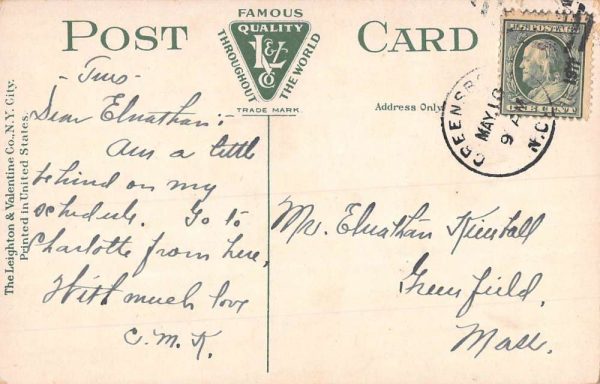 POST CARD
FAMOUS
QUALITY
THROUGHOUT
THE WORLD
L&V
Co
TRADE MARK
Address Only
U.S. POSTAGE
ONE CENT
GREENSBO
MAY 18
9 AM
N.C.
The Leighton & Valentine Co., N.Y. City.
Printed in United States.
Dear Elnathan:
Am a little
behind on my
schedule. Go to
Charlotte from here.
With much love
C.M.K.
Mr. Elnathan Kimball
Greenfield,
Mass.